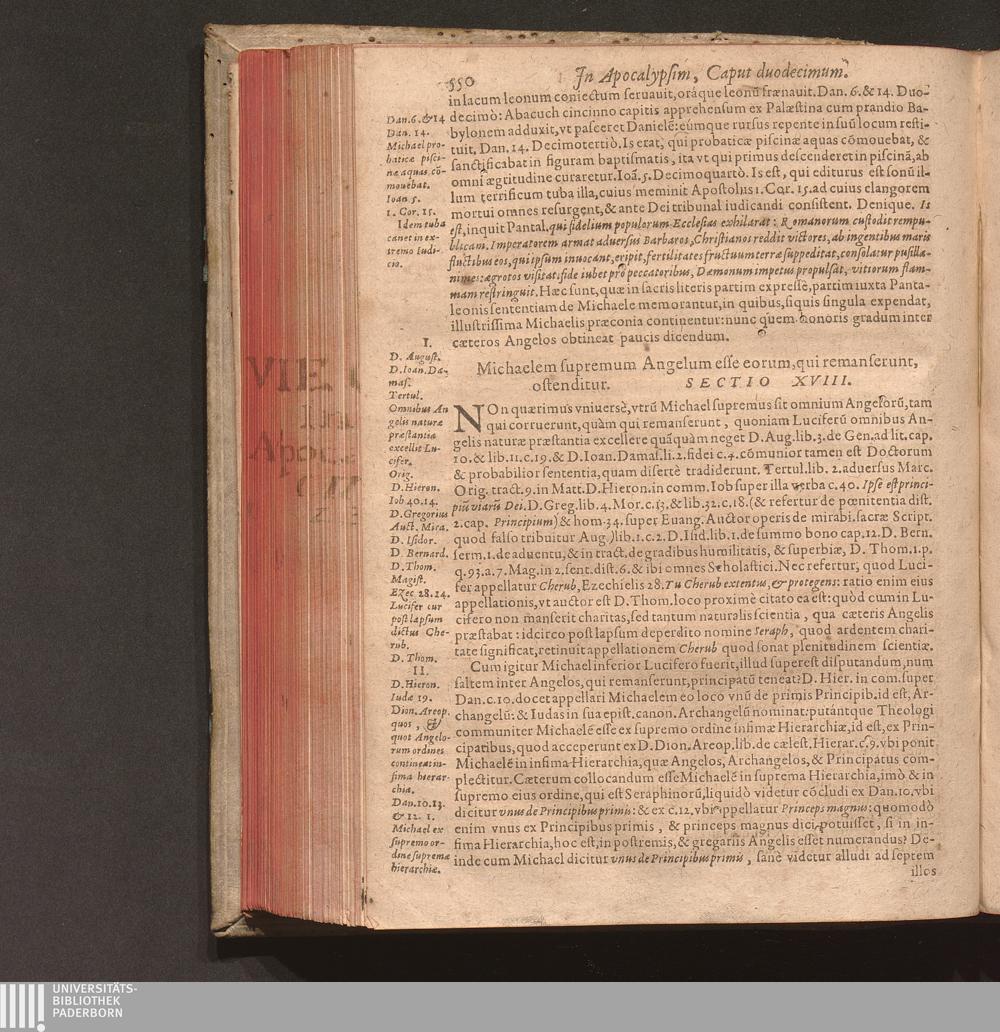 550
In Apocalypsim, Caput duodecimum.
in lacum leonum coniectum seruauit, oráque leonū frænauit. Dan. 6. & 14. Duo-
decimò: Abacuch cincinno capitis apprehensum ex Palæstina cum prandio Ba-
bylonem adduxit, vt pasceret Danielē: eúmque rursus repente in suū locum resti-
tuit, Dan. 14. Decimotertiò. Is erat, qui probaticæ piscinæ aquas cōmouebat, &
sanctificabat in figuram baptismatis, ita vt qui primus descenderet in piscinā, ab
omni ægritudine curaretur. Ioā. 5. Decimoquartò. Is est, qui editurus est sonū il-
lum terrificum tuba illa, cuius meminit Apostolus 1. Cor. 15. ad cuius clangorem
mortui omnes resurgent, & ante Dei tribunal iudicandi consistent. Denique. Is
est, inquit Pantal. qui fidelium populorum Ecclesias exhilarat: Romanorum custodit rempu-
blicam. Imperatorem armat aduersus Barbaros, Christianos reddit victores, ab ingentibus maris
fluctibus eos, qui ipsum inuocant, eripit, fertilitates fructuum terræ suppeditat, consolatur pusilla-
nimes: ægrotos visitat: fide iubet pro peccatoribus, Dæmonum impetus propulsat, vitiorum flam-
mam restringuit. Hæc sunt, quæ in sacris literis partim expressè, partim iuxta Panta-
leonis sententiam de Michaele memorantur, in quibus, siquis singula expendat,
illustrissima Michaelis præconia continentur: nunc quem honoris gradum inter
cæteros Angelos obtineat paucis dicendum.
Dan. 6. & 14
Dan. 14.
Michael pro-
baticæ pisci-
næ aquas cō-
mouebat.
Ioan. 5.
1. Cor. 15.
Idem tuba
canet in ex-
tremo Iudi-
cio.
Michaelem supremum Angelum esse eorum, qui remanserunt,
ostenditur. SECTIO XVIII.
NOn quærimus vniuersè, vtrū Michael supremus sit omnium Angelorū, tam
qui corruerunt, quàm qui remanserunt, quoniam Luciferū omnibus An-
gelis naturæ præstantia excellere quāquàm neget D. Aug. lib. 3. de Gen. ad lit. cap.
10. & lib. 11. c. 19. & D. Ioan. Damas. li. 2. fidei c. 4. cōmunior tamen est Doctorum
& probabilior sententia, quam disertè tradiderunt. Tertul. lib. 2. aduersus Marc.
Orig. tract. 9. in Matt. D. Hieron. in comm. Iob super illa verba c. 40. Ipse est princi-
piū viarū Dei. D. Greg. lib. 4. Mor. c. 13. & lib. 32. c. 18. (& refertur de pœnitentia dist.
2. cap. Principium) & hom. 34. super Euang. Auctor operis de mirabi. sacræ Script.
quod falso tribuitur Aug.) lib. 1. c. 2. D. Isid. lib. 1. de summo bono cap. 12. D. Bern.
serm. 1. de aduentu, & in tract. de gradibus humilitatis, & superbiæ, D. Thom. 1. p.
q. 93. a. 7. Mag. in 2. sent. dist. 6. & ibi omnes Scholastici. Nec refertur, quod Luci-
fer appellatur Cherub, Ezechielis 28. Tu Cherub extentus, & protegens: ratio enim eius
appellationis, vt auctor est D. Thom. loco proximè citato ea est: quòd cum in Lu-
cifero non manserit charitas, sed tantum naturalis scientia, qua cæteris Angelis
præstabat: idcirco post lapsum deperdito nomine Seraph, quod ardentem chari-
tate significat, retinuit appellationem Cherub quod sonat plenitudinem scientiæ.
Cum igitur Michael inferior Lucifero fuerit, illud superest disputandum, num
saltem inter Angelos, qui remanserunt, principatū teneat? D. Hier. in com. super
Dan. c. 10. docet appellari Michaelem eo loco vnū de primis Principib. id est, Ar-
changelū: & Iudas in sua epist. canon. Archangelū nominat: putántque Theologi
communiter Michaelē esse ex supremo ordine infimæ Hierarchiæ, id est, ex Prin-
cipatibus, quod acceperunt ex D. Dion. Areop. lib. de cælest. Hierar. c. 9. vbi ponit
Michaelē in infima Hierarchia, quæ Angelos, Archangelos, & Principatus com-
plectitur. Cæterum collocandum esse Michaelē in suprema Hierarchia, imò & in
supremo eius ordine, qui est Seraphinorū, liquidò videtur cōcludi ex Dan. 10. vbi
dicitur vnus de Principibus primis: & ex c. 12. vbi appellatur Princeps magnus: quomodò
enim vnus ex Principibus primis, & princeps magnus dici potuisset, si in in-
fima Hierarchia, hoc est, in postremis, & gregariis Angelis esset numerandus? De-
inde cum Michael dicitur vnus de Principibus primis, sanè videtur alludi ad septem
illos
I.
D. August.
D. Ioan. Da-
mas.
Tertul.
Omnibus An
gelis naturæ
præstantia
excellit Lu-
cifer.
Orig.
D. Hieron.
Iob 40. 14.
D. Gregorius
Auct. Mira.
D. Isidor.
D. Bernard.
D. Thom.
Magist.
Ezec. 28. 14.
Lucifer cur
post lapsum
dictus Che-
rub.
D. Thom.
II.
D. Hieron.
Iudæ 19.
Dion. Areop.
quos, &
quot Angelo-
rum ordines
contineat in-
fima hierar-
chia.
Dan. 10. 13.
& 12. 1.
Michael ex
supremo or-
dine supremæ
hierarchiæ.
VIE
Apoc
UNIVERSITÄTS-
BIBLIOTHEK
PADERBORN